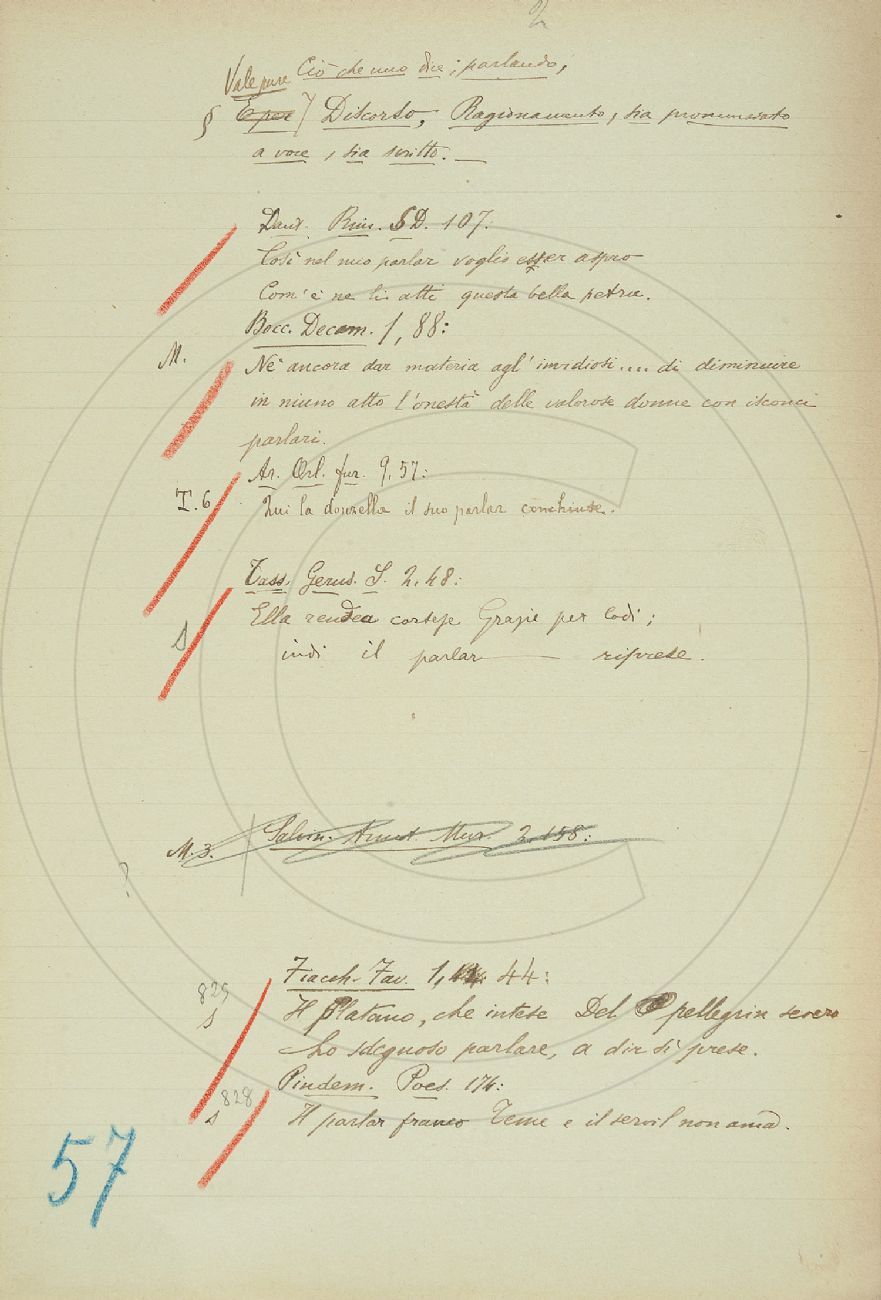 2
Vale pure Ciò che uno dice, parlando,
§ E per Discorso, Ragionamento, sia pronunziato
a voce, sia scritto. —
Dant. Rim. SD. 107:
Così nel mio parlar voglio esser aspro
Com'è ne li atti questa bella petra.
Bocc. Decam. 1, 88:
M. Nè ancora dar materia agl'invidiosi.... di diminuire
in niuno atto l'onestà delle valorose donne con isconci
parlari.
Ar. Orl. fur. 9, 57:
T. 6 Qui la donzella il suo parlar conchiuse.
Tass. Gerus. S. 2, 48:
S Ella rendea cortese Grazie per lodi;
indi il parlar — riprese.
M. 3. Salvin. Annot. Mur. 2, 158:
?
Fiacch. Fav. 1, 44:
829
S Il Platano, che intese Del pellegrin severo
Lo sdegnoso parlare, a dir sì prese.
Pindem. Poes. 176:
828
S Il parlar franco Teme e il servil non ama.
57